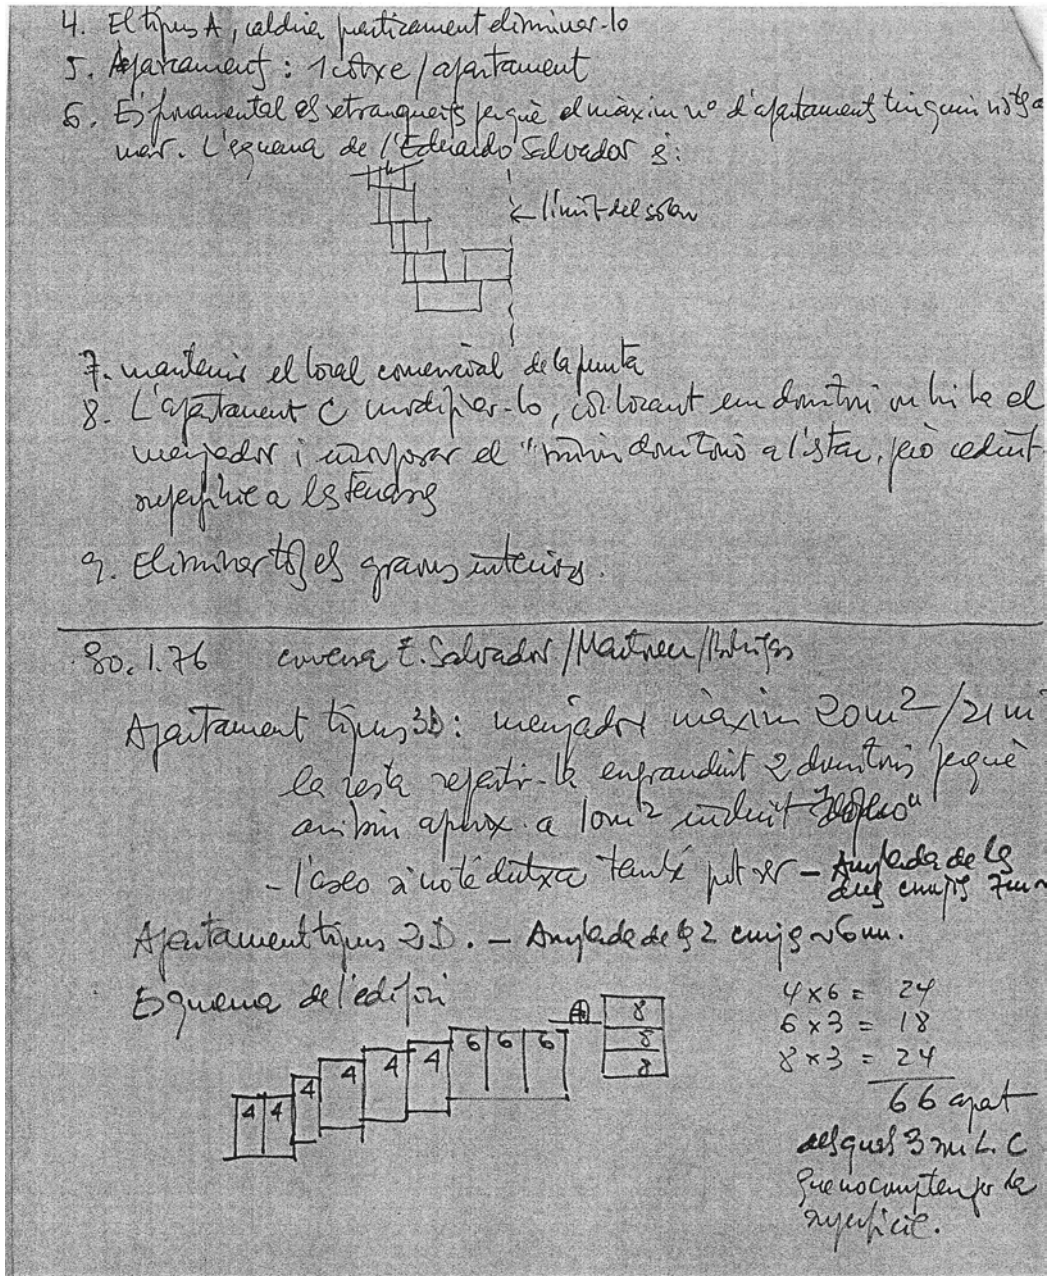 4. El tipus A, caldria practicament eliminar-lo
5. Aparcament: 1 cotxe / apartament
6. És fonamental els retranqueigs perquè el màxim nº d'apartaments tinguin vistes a
mar. L'esquema de l'Eduardo Salvador és:
← límit del solar
7. mantenir el local comercial de la punta
8. L'apartament C modificar-lo, col·locant un dormitori on hi ha el
menjador i incorporar el "mini dormitori a l'estar, però cedint
superfície a les terrasses
9. Eliminar tots els graons interiors.
30.1.76 conversa E. Salvador / / Bohigas
Apartament tipus 3D: menjador màxim 20m² / 21m
la resta repartir-la engrandint 2 dormitoris perquè
arribin aprox. a 10m²
- l'aseo si no té dutxa també pot ser - Amplada de les
dues 7m
Apartament tipus 2D. - Amplada de les 2 ~ 6m.
Esquema de l'edifici
4 4 4 4 4 4 6 6 6
8
8
8
4 x 6 = 24
6 x 3 = 18
8 x 3 = 24
66 apat
dels quals 3 L.C
que no compten per la
superfície.